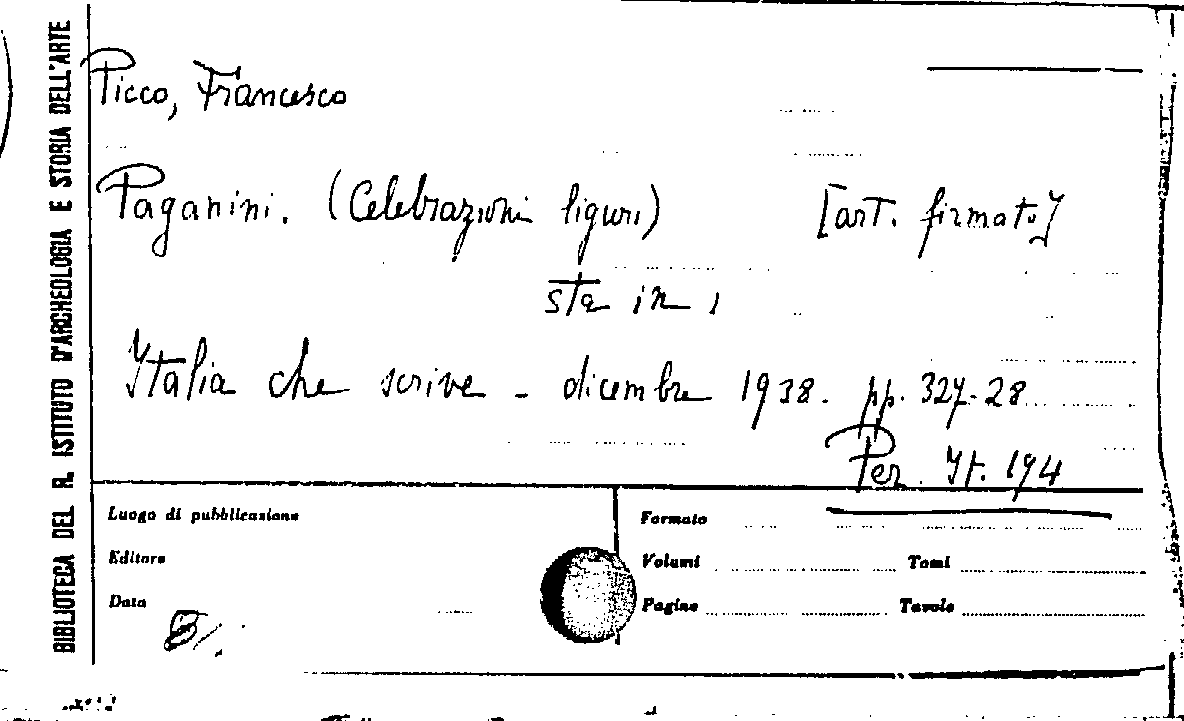 BIBLIOTECA DEL R. ISTITUTO D'ARCHEOLOGIA E STORIA DELL'ARTE
Picco, Francesco
Paganini. (Celebrazioni liguri) [art. firmato]
sta in:
Italia che scrive - dicembre 1938. pp. 327-28
Per. It. 194
Luogo di pubblicazione
Formato
Editore
Volumi Tomi
Data
Pagine Tavole